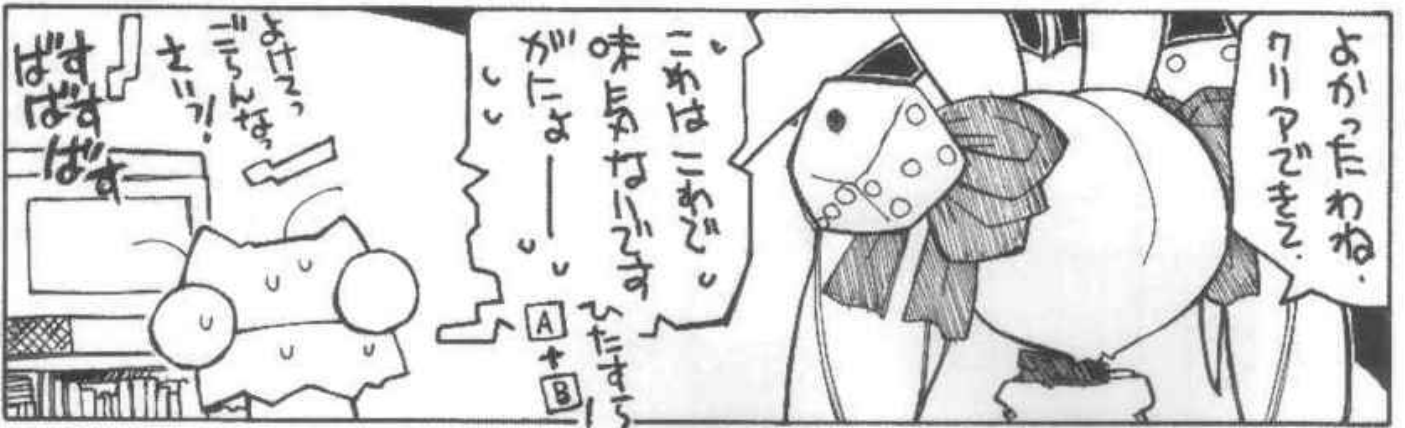 よかったわね.
クリアできて.
これはこれで
味気ないです
がにょ──
ひたすら!
A+B
よけてっ
ごらんなっ
さいっ!
ばす
ばす
ばす